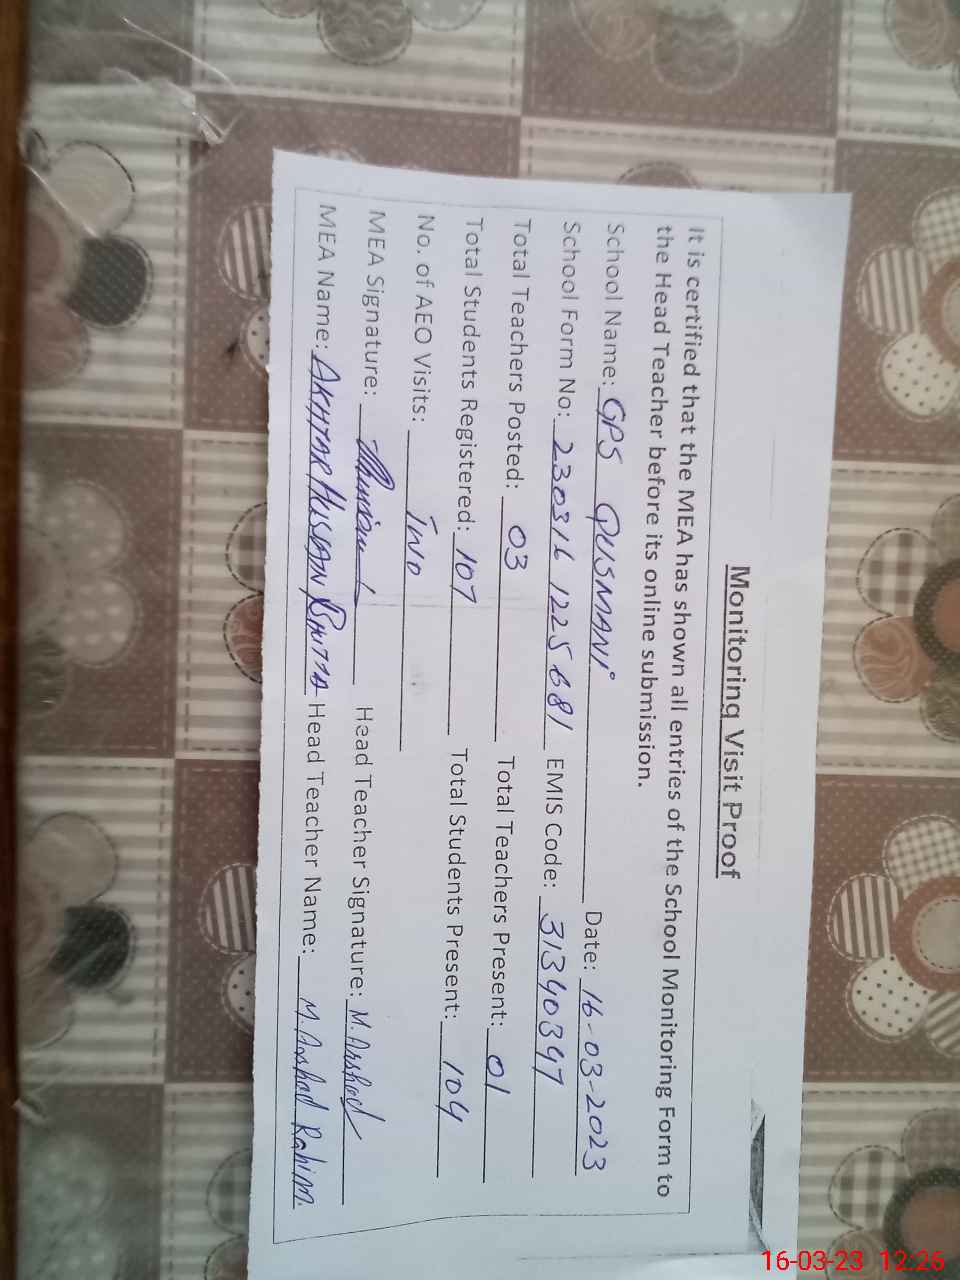 Monitoring Visit Proof
It is certified that the MEA has shown all entries of the School Monitoring Form to
the Head Teacher before its online submission.
School Name: GPS QUSMANI Date: 16-03-2023
School Form No: 230316 1225681 EMIS Code: 31340347
Total Teachers Posted: 03 Total Teachers Present: 01
Total Students Registered: 107 Total Students Present: 104
No. of AEO Visits:
MEA Signature: Head Teacher Signature: M. Arshad
MEA Name: AKHTAR HUSSAN BHTTA Head Teacher Name: M. Arshad Rahim
16-03-23 12:26